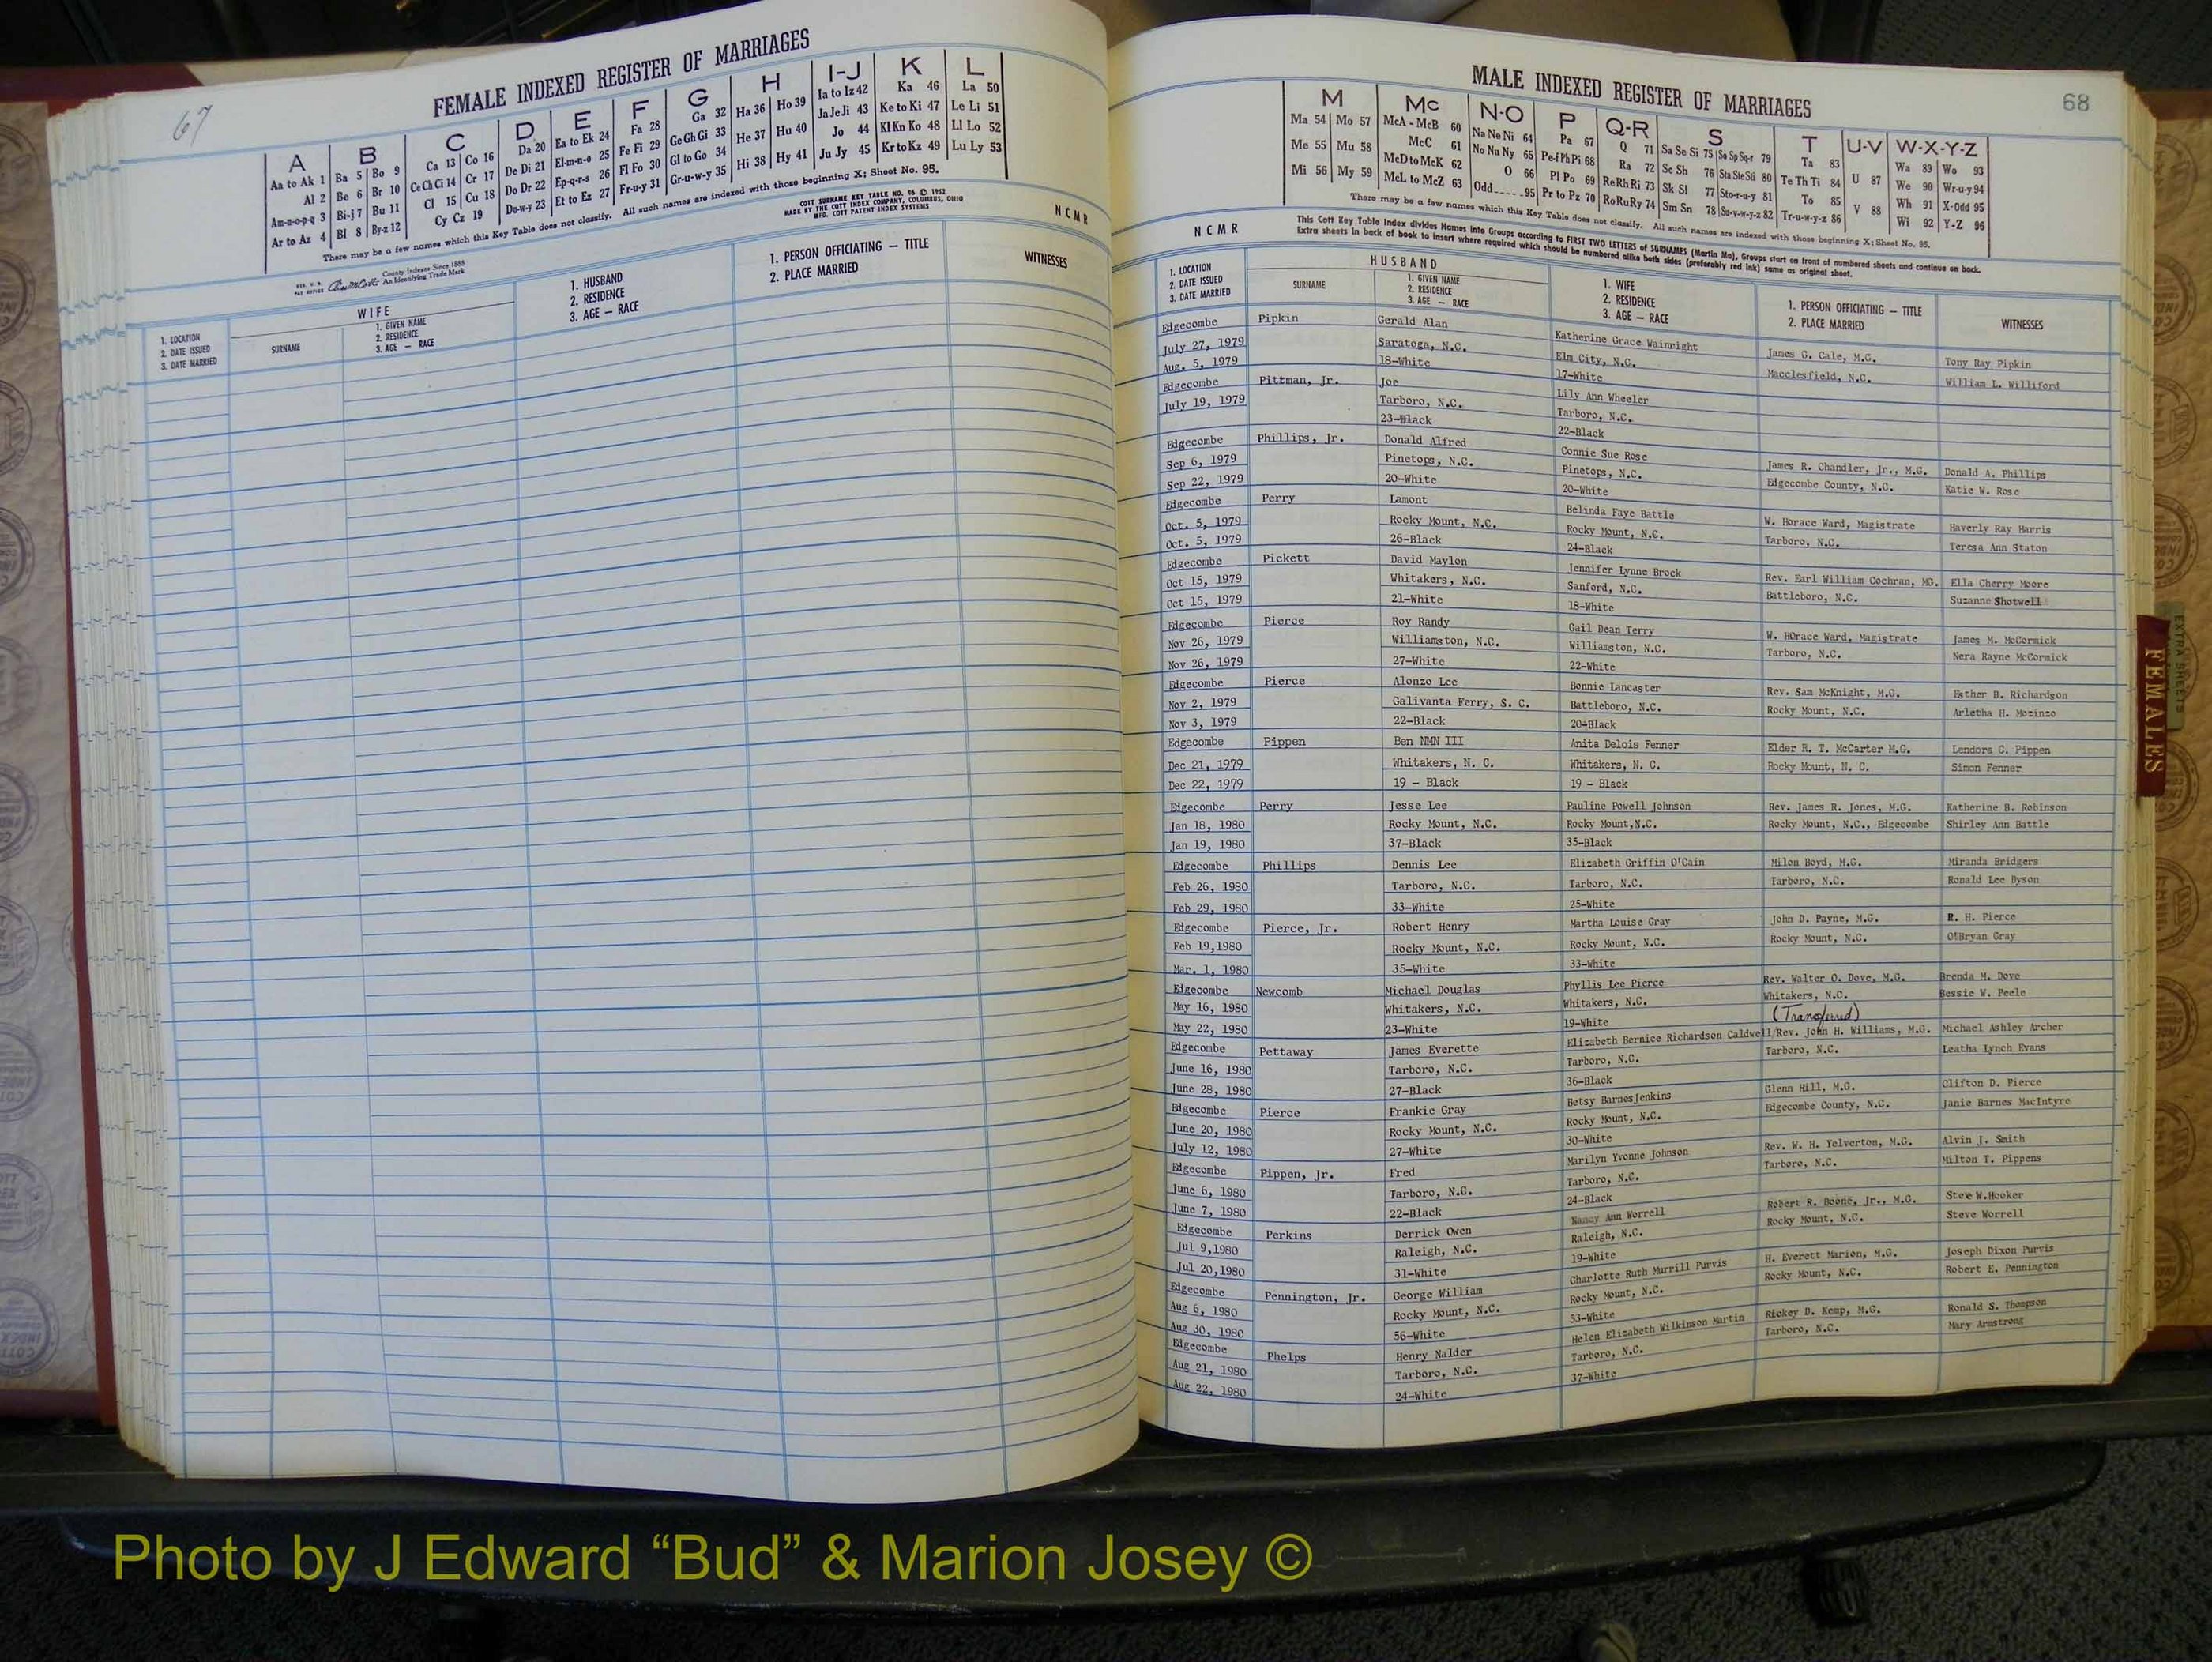 67
FEMALE INDEXED REGISTER OF MARRIAGES
A B C D E F G H I-J K L
Aa to Ak 1 Ba 5 Bo 9 Ca 13 Co 16 Da 20 Ea to Ek 24 Fa 28 Ga 32 Ha 36 Ho 39 Ia to Iz 42 Ka 46 La 50
Al 2 Be 6 Br 10 Ce Ch Ci 14 Cr 17 De Di 21 El-m-n-o 25 Fe Fi 29 Ge Gh Gi 33 He 37 Hu 40 Ja Je Ji 43 Ke to Ki 47 Le Li 51
Am-n-o-p-q 3 Bi-j 7 Bu 11 Cl 15 Cu 18 Do Dr 22 Ep-q-r-s 26 Fl Fo 30 Gl to Go 34 Hi 38 Hy 41 Jo 44 Kl Kn Ko 48 Ll Lo 52
Ar to Az 4 Bl 8 By-z 12 Cy Cz 19 Du-w-y 23 Et to Ez 27 Fr-u-y 31 Gr-u-w-y 35 Ju Jy 45 Kr to Kz 49 Lu Ly 53
There may be a few names which this Key Table does not classify. All such names are indexed with those beginning X; Sheet No. 95.
County Indexes Since 1888
An Identifying Trade Mark
COTT SURNAME KEY TABLE NO. 96 © 1952
MADE BY THE COTT INDEX COMPANY, COLUMBUS, OHIO
MFG. COTT PATENT INDEX SYSTEMS
NCMR
1. LOCATION
2. DATE ISSUED
3. DATE MARRIED
WIFE
SURNAME
1. GIVEN NAME
2. RESIDENCE
3. AGE — RACE
1. HUSBAND
2. RESIDENCE
3. AGE — RACE
1. PERSON OFFICIATING — TITLE
2. PLACE MARRIED
WITNESSES
MALE INDEXED REGISTER OF MARRIAGES
68
M Mc N-O P Q-R S T U-V W-X-Y-Z
Ma 54 Mo 57 McA - McB 60 Na Ne Ni 64 Pa 67 Q 71 Sa Se Si 75 So Sp Sq-r 79 Ta 83 U 87 Wa 89 Wo 93
Me 55 Mu 58 McC 61 No Nu Ny 65 Pe-f Ph Pi 68 Ra 72 Sc Sh 76 Sta Ste Sti 80 Te Th Ti 84 V 88 We 90 Wr-u-y 94
Mi 56 My 59 McD to McK 62 O 66 Pl Po 69 Re Rh Ri 73 Sk Sl 77 Sto-r-u-y 81 To 85 Wh 91 X-Odd 95
McL to McZ 63 Odd-----95 Pr to Pz 70 Ro Ru Ry 74 Sm Sn 78 Su-v-w-y-z 82 Tr-u-w-y-z 86 Wi 92 Y-Z 96
There may be a few names which this Key Table does not classify. All such names are indexed with those beginning X; Sheet No. 95.
NCMR
This Cott Key Table Index divides Names into Groups according to FIRST TWO LETTERS of SURNAMES (Martin Ma), Groups start on front of numbered sheets and continue on back.
Extra sheets in back of book to insert where required which should be numbered alike both sides (preferably red ink) same as original sheet.
1. LOCATION
2. DATE ISSUED
3. DATE MARRIED
HUSBAND
SURNAME
1. GIVEN NAME
2. RESIDENCE
3. AGE — RACE
1. WIFE
2. RESIDENCE
3. AGE — RACE
1. PERSON OFFICIATING — TITLE
2. PLACE MARRIED
WITNESSES
Edgecombe Pipkin Gerald Alan Katherine Grace Wainright James G. Cale, M.G. Tony Ray Pipkin
July 27, 1979 Saratoga, N.C. Elm City, N.C. Macclesfield, N.C. William L. Williford
Aug. 5, 1979 18-White 17-White
Edgecombe Pittman, Jr. Joe Lily Ann Wheeler
July 19, 1979 Tarboro, N.C. Tarboro, N.C.
23-Black 22-Black
Edgecombe Phillips, Jr. Donald Alfred Connie Sue Rose James R. Chandler, Jr., M.G. Donald A. Phillips
Sep 6, 1979 Pinetops, N.C. Pinetops, N.C. Edgecombe County, N.C. Katie W. Rose
Sep 22, 1979 20-White 20-White
Edgecombe Perry Lamont Belinda Faye Battle W. Horace Ward, Magistrate Haverly Ray Harris
Oct. 5, 1979 Rocky Mount, N.C. Rocky Mount, N.C. Tarboro, N.C. Teresa Ann Staton
Oct. 5, 1979 26-Black 24-Black
Edgecombe Pickett David Maylon Jennifer Lynne Brock Rev. Earl William Cochran, MG. Ella Cherry Moore
Oct 15, 1979 Whitakers, N.C. Sanford, N.C. Battleboro, N.C. Suzanne Shotwell
Oct 15, 1979 21-White 18-White
Edgecombe Pierce Roy Randy Gail Dean Terry W. HOrace Ward, Magistrate James M. McCormick
Nov 26, 1979 Williamston, N.C. Williamston, N.C. Tarboro, N.C. Nera Rayne McCormick
Nov 26, 1979 27-White 22-White
Edgecombe Pierce Alonzo Lee Bonnie Lancaster Rev. Sam McKnight, M.G. Esther B. Richardson
Nov 2, 1979 Galivanta Ferry, S. C. Battleboro, N.C. Rocky Mount, N.C. Arletha H. Mozinzo
Nov 3, 1979 22-Black 20-Black
Edgecombe Pippen Ben NMN III Anita Delois Fenner Elder R. T. McCarter M.G. Lendora C. Pippen
Dec 21, 1979 Whitakers, N. C. Whitakers, N. C. Rocky Mount, N. C. Simon Fenner
Dec 22, 1979 19 - Black 19 - Black
Edgecombe Perry Jesse Lee Pauline Powell Johnson Rev. James R. Jones, M.G. Katherine B. Robinson
Jan 18, 1980 Rocky Mount, N.C. Rocky Mount,N.C. Rocky Mount, N.C., Edgecombe Shirley Ann Battle
Jan 19, 1980 37-Black 35-Black
Edgecombe Phillips Dennis Lee Elizabeth Griffin O'Cain Milon Boyd, M.G. Miranda Bridgers
Feb 26, 1980 Tarboro, N.C. Tarboro, N.C. Tarboro, N.C. Ronald Lee Dyson
Feb 29, 1980 33-White 25-White
Edgecombe Pierce, Jr. Robert Henry Martha Louise Gray John D. Payne, M.G. R. H. Pierce
Feb 19,1980 Rocky Mount, N.C. Rocky Mount, N.C. Rocky Mount, N.C. O'Bryan Gray
Mar. 1, 1980 35-White 33-White
Edgecombe Newcomb Michael Douglas Phyllis Lee Pierce Rev. Walter O. Dove, M.G. Brenda M. Dove
May 16, 1980 Whitakers, N.C. Whitakers, N.C. Whitakers, N.C. Bessie W. Peele
May 22, 1980 23-White 19-White (Transferred)
Edgecombe Pettaway James Everette Elizabeth Bernice Richardson Caldwell/Rev. John H. Williams, M.G. Michael Ashley Archer
June 16, 1980 Tarboro, N.C. Tarboro, N.C. Tarboro, N.C. Leatha Lynch Evans
June 28, 1980 27-Black 36-Black
Edgecombe Pierce Frankie Gray Betsy BarnesJenkins Glenn Hill, M.G. Clifton D. Pierce
June 20, 1980 Rocky Mount, N.C. Rocky Mount, N.C. Edgecombe County, N.C. Janie Barnes MacIntyre
July 12, 1980 27-White 30-White
Edgecombe Pippen, Jr. Fred Marilyn Yvonne Johnson Rev. W. H. Yelverton, M.G. Alvin J. Smith
June 6, 1980 Tarboro, N.C. Tarboro, N.C. Tarboro, N.C. Milton T. Pippens
June 7, 1980 22-Black 24-Black
Edgecombe Perkins Derrick Owen Nancy Ann Worrell Robert R. Boone, Jr., M.G. Steve W.Hooker
Jul 9,1980 Raleigh, N.C. Raleigh, N.C. Rocky Mount, N.C. Steve Worrell
Jul 20,1980 31-White 19-White
Edgecombe Pennington, Jr. George William Charlotte Ruth Murrill Purvis H. Everett Marion, M.G. Joseph Dixon Purvis
Aug 6, 1980 Rocky Mount, N.C. Rocky Mount, N.C. Rocky Mount, N.C. Robert E. Pennington
Aug 30, 1980 56-White 53-White
Edgecombe Phelps Henry Nalder Helen Elizabeth Wilkinson Martin Rickey D. Kemp, M.G. Ronald S. Thompson
Aug 21, 1980 Tarboro, N.C. Tarboro, N.C. Tarboro, N.C. Mary Armstrong
Aug 22, 1980 24-White 37-White
EXTRA SHEETS
FEMALES
Photo by J Edward “Bud” & Marion Josey ©